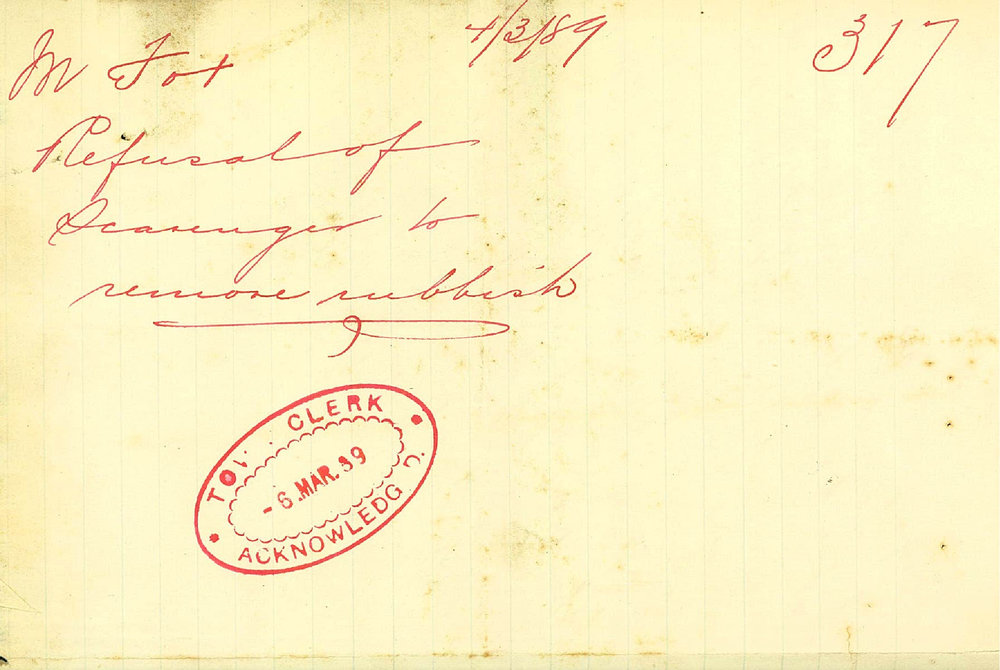 M Fox 4/3/89 317
Refusal of
Scavenger to
remove rubbish
TOW CLERK
- 6. MAR. 89
ACKNOWLEDG